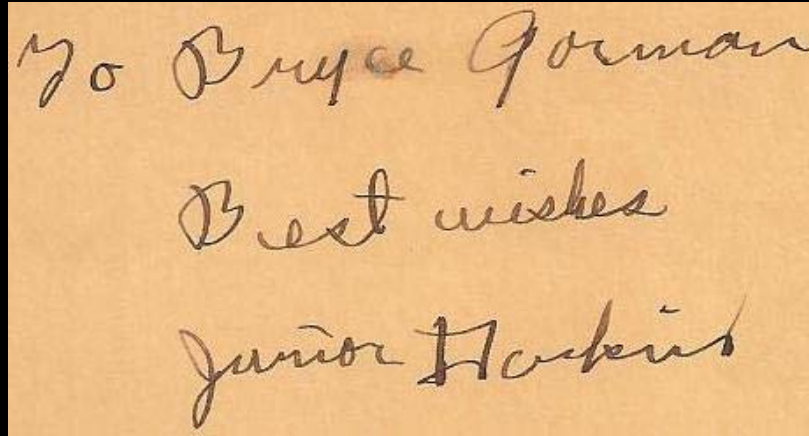 To Bryce Gorman
Best wishes
Junior